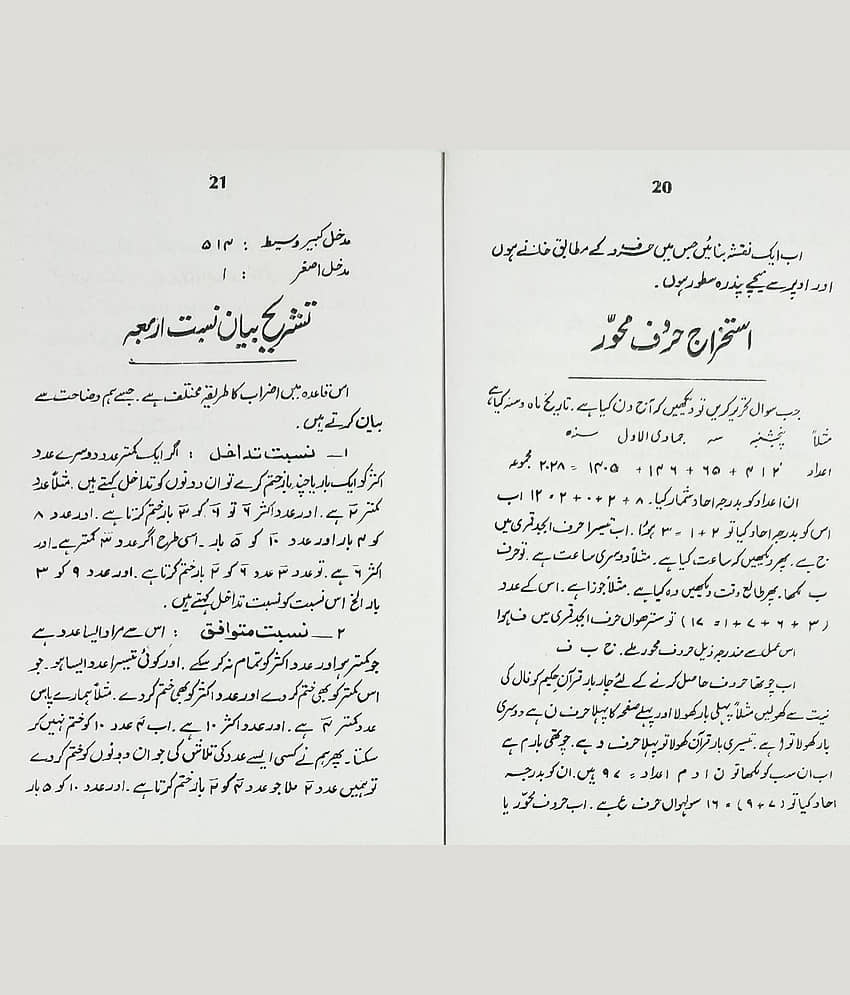 20
اب ایک نقشہ بنائیں جس میں حروف کے مطابق خانے ہوں
اور اوپر سے نیچے پندرہ سطور ہوں۔
استخراج حروف محوّر
جب سوال تحریر کریں تو دیکھیں کہ آج دن کیا ہے۔ تاریخ ماہ و سنہ کیا ہے
مثلاً پنجشنبہ سہ جمادی الاول سنہ
اعداد ۴۱۲ + ۶۵ + ۱۴۶ + ۱۴۰۵ = ۲۰۲۸ مجموعہ
ان اعداد کو بدرجہ احاد شمار کیا۔ ۸ + ۲ + ۰ + ۲ = ۱۲ اب
اس کو بدرجہ احاد کیا تو ۲ + ۱ = ۳ ہوا۔ اب تیسرا حرف ابجد قمری میں
ج ہے۔ پھر دیکھیں کہ ساعت کیا ہے۔ مثلاً دوسری ساعت ہے۔ تو حرف
ب لکھا۔ پھر طالع وقت دیکھیں وہ کیا ہے۔ مثلاً جوزا ہے۔ اس کے عدد
(۳ + ۶ + ۷ + ۱ = ۱۷) تو سترھواں حرف ابجد قمری میں ف ہوا
اس عمل سے مندرجہ ذیل حروف محور ملے۔ ج ب ف
اب چوتھا حروف حاصل کرنے کے لئے چار بار قرآن حکیم کو فال کی
نیت سے کھولیں مثلاً پہلی بار کھولا اور پہلے صفحہ کا پہلا حرف ن ہے دوسری
بار کھولا تو ا ہے۔ تیسری بار قرآن کھولا تو پہلا حرف د ہے۔ چوتھی بار م ہے
اب ان سب کو لکھا تو ن ا د م اعداد = ۹۷ ہیں۔ ان کو بدرجہ
احاد کیا تو (۷ + ۹) = ۱۶ سولہواں حرف ع ہے۔ اب حروف محوّر یا
21
مدخل کبیر وسیط : ۵۱۴
مدخل اصغر : ۱
تشریح بیان نسبت اربعہ
اس قاعدہ میں اضراب کا طریقہ مختلف ہے۔ جسے ہم وضاحت سے
بیان کرتے ہیں۔
۱۔ نسبت تداخل : اگر ایک کمتر عدد دوسرے عدد
اکثر کو ایک بار یا چند بار ختم کرے تو ان دونوں کو تداخل کہتے ہیں۔ مثلاً عدد
کمتر ۲ ہے۔ اور عدد اکثر ۶ تو ۶ کو ۳ بار ختم کرتا ہے۔ اور عدد ۸
کو ۴ بار اور عدد ۱۰ کو ۵ بار۔ اسی طرح اگر عدد ۳ کمتر ہے۔ اور
اکثر ۶ ہے۔ تو عدد ۳ عدد ۶ کو ۲ بار ختم کرتا ہے۔ اور عدد ۹ کو ۳
بار الخ اس نسبت کو نسبت تداخل کہتے ہیں۔
۲۔ نسبت متوافق : اس سے مراد ایسا عدد ہے
جو کمتر ہو اور عدد اکثر کو تمام نہ کر سکے۔ اور کوئی تیسرا عدد ایسا ہو۔ جو
اس کمتر کو بھی ختم کر دے اور عدد اکثر کو بھی ختم کر دے۔ مثلاً ہمارے پاس
عدد کمتر ۴ ہے۔ اور عدد اکثر ۱۰ ہے۔ اب ۴ عدد ۱۰ کو ختم نہیں کر
سکتا۔ پھر ہم نے کسی ایسے عدد کی تلاش کی جو ان دونوں کو ختم کر دے
تو ہمیں عدد ۲ ملا جو عدد ۴ کو ۲ بار ختم کرتا ہے۔ اور عدد ۱۰ کو ۵ بار